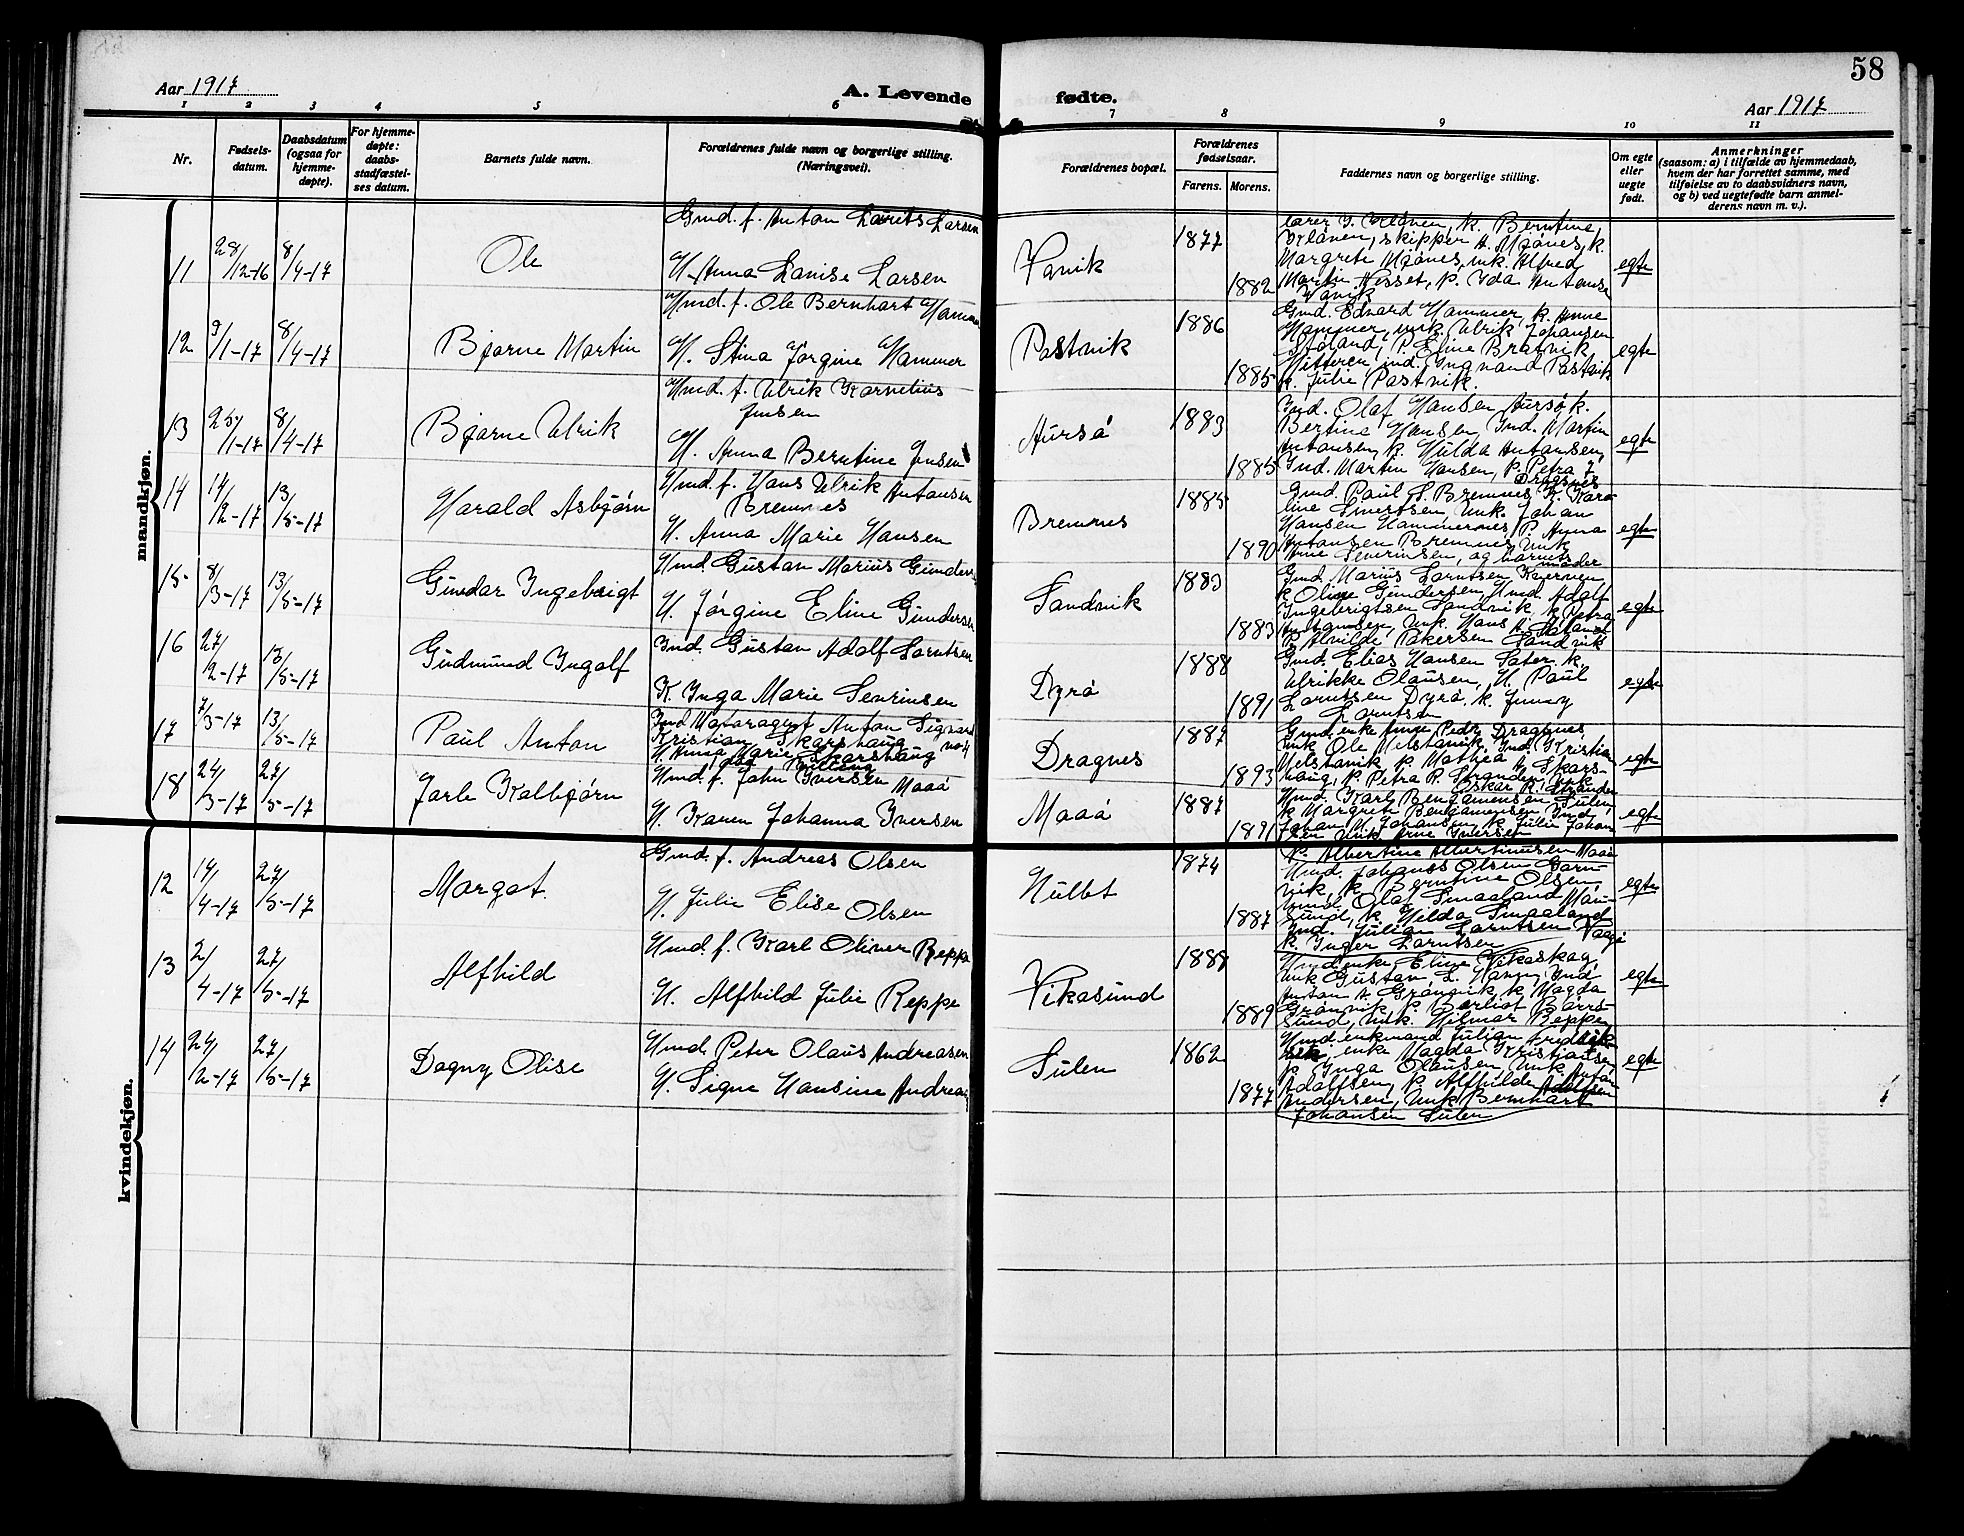 58
Aar 1917
A. Levende fødte.
Aar 1917
1 2 3 4 5 6 7 8 9 10 11
Nr.
Fødsels-
datum.
Daabsdatum
(ogsaa for
hjemme-
døpte).
For hjemme-
døpte:
daabs-
stadfæstel-
ses datum.
Barnets fulde navn.
Forældrenes fulde navn og borgerlige stilling.
(Næringsvei).
Forældrenes bopæl.
Forældrenes
fødselsaar.
Farens. Morens.
Faddernes navn og borgerlige stilling.
Om egte
eller
uegte
født.
Anmerkninger
(saasom: a) i tilfælde av hjemmedaab,
hvem der har forrettet samme, med
tilføielse av to daabsvidners navn,
og b) ved uegtefødte barn anmel-
derens navn m. v.).
mandkjøn.
11 28/12-16 8/4-17 Ole
Gmd. f. Anton Lorets Larsen
H. Anna Lovise Larsen
Vavik 1877 1882
k. Berntine
skipper A. Mjønes, k.
Margrete Mjønes, unk. Alfred
Martin Hesset, p. Ida Antonsen
Vavik
egte
12 9/1-17 8/4-17 Bjarne Martin
Hmd. f. Ole Bernhart Hammer
H. Stina Jørgine Hammer
Pastvik 1886 1885
Gmd. Edvard Hammer, k. Anne
Hammer, unk. Ulrik Johansen
Stoland, p. Eline Bratvik
Titteren, ind. Ingvand Pastvik
k. Julie Pastvik.
egte
13 25/1-17 8/4-17 Bjarne Ulrik
Hmd. f. Ulrik Kornelius
Jensen
H. Anna Berntine Jensen
Aursø 1883 1885
Ind. Olaf Hansen Aursø k.
Bertine Hansen, Ind. Martin
Antonsen, k. Hulda Antonsen,
Ind. Martin Hansen, p. Petra J.
Dragsnes
egte
14 14/2-17 13/5-17 Harald Asbjørn
Hmd. f. Hans Ulrik Antonsen
Bremnes
H. Anna Marie Hansen
Bremnes 1885 1890
Gmd. Paul S. Bremnes k. Karo-
line Sivertsen, unk. Johan
Hansen Hammernes, p. Anna
Antonsen Bremnes, unk
Arne Severinsen, og barnets
moder
egte
15 8/3-17 13/5-17 Gunder Ingebrigt
Hmd Gustav Marius Gundersen
H. Jørgine Eline Gundersen
Sandvik 1883 1883
Gmd. Marius Larntsen Kjerven
k Oline Gundersen, Hmd. Adolf
Ingebrigtsen Sandvik k. Petra
Antonsen, unk. Hans A.
Sandvik
egte
16 27/2-17 13/5-17 Gudmund Ingolf
Ind. Gustav Adolf Larntsen
K. Inga Marie Severinsen
Dyrø 1888 1891
Gmd. Elias Hansen Sater. k.
Ulrikke Olausen, H. Paul
Larntsen Dyrø. k. Jenny
Larntsen
egte
17 7/3-17 13/5-17 Paul Anton
Anton Sigvard
Kristian Skarshaug
H. Anna Marie Skarshaug
Dragnes 1887 1893
Gmd. enke Anne Pedr. Dragsnes,
unk Ole Melstavik, Ind. Kristian
Melstavik k. Mathea A. Skars-
haug, p. Petra R. Stranden, unk
Oskar R. Stranden
egte
18 24/3-17 27/5-17 Jarle Kolbjørn
Hmd. f. John Iversen Maaø
H. Karen Johanna Iversen
Maaø 1887 1891
Hmd. Karl Benjaminsen Sulen,
k Margrete Benjaminsen, Ind
Johan M. Johansen, k. Julie Johan-
sen, unk Arne Iversen
p. Albertine Albertinusen Maaø
egte
kvindekjøn.
12 14/4-17 27/5-17 Margot.
Gmd. f. Andreas Olsen
H. Julie Elise Olsen
Hulbt 1874 1887
Hmd. Johanes Olsen Garn-
vik, k. Berntine Olsen,
Hmd. Olaf Smaaland Mau-
sund, k. Hilda Smaaland
Ind. Julian Larntsen Vaagø
k. Inger Larntsen
egte
13 2/4-17 27/5-17 Alfhild
Hmd. f. Karl Oliver Reppe
H. Alfhild Julie Reppe
Vikasund 1888 1889
Hmd enke Eline Vikaskag,
unk Gustav L. Hammer, Ind
Anton A. Grønvik k. Magda
Grønvik, p. Borliot Børrø-
sund, unk. Hilmar Reppe
egte
14 24/2-17 27/5-17 Dagny Olise
Hmd. Peter Olaus Andreasen
H. Signe Hansine Andreasen
Sulen 1862 1877
Hmd. enkemand Julian Fredrik-
sen, enke Magda Kristiansen
p Inga Olausen, unk Anton
Adolfsen, p. Alfhilde Adolfsen
Andersen, unk Bernhart
Johansen Sulen
egte